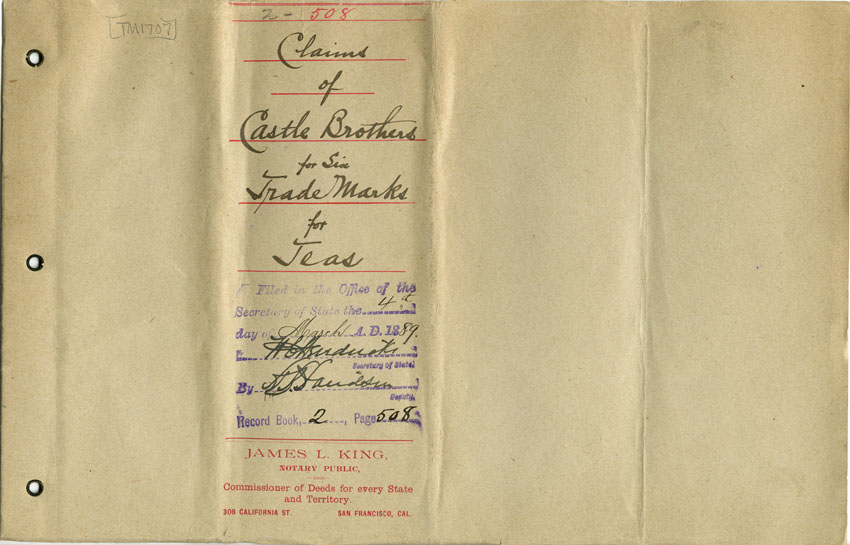 TM1707
2 - 508
Claims
of
Castle Brothers
for Six
Trade Marks
for
Teas
Filed in the Office of the
Secretary of State the 4th
day of March A. D. 1889.
W C Hendricks
Secretary of State
By
Deputy.
Record Book, 2, Page 508
JAMES L. KING,
NOTARY PUBLIC,
AND
Commissioner of Deeds for every State
and Territory.
308 CALIFORNIA ST. SAN FRANCISCO, CAL.